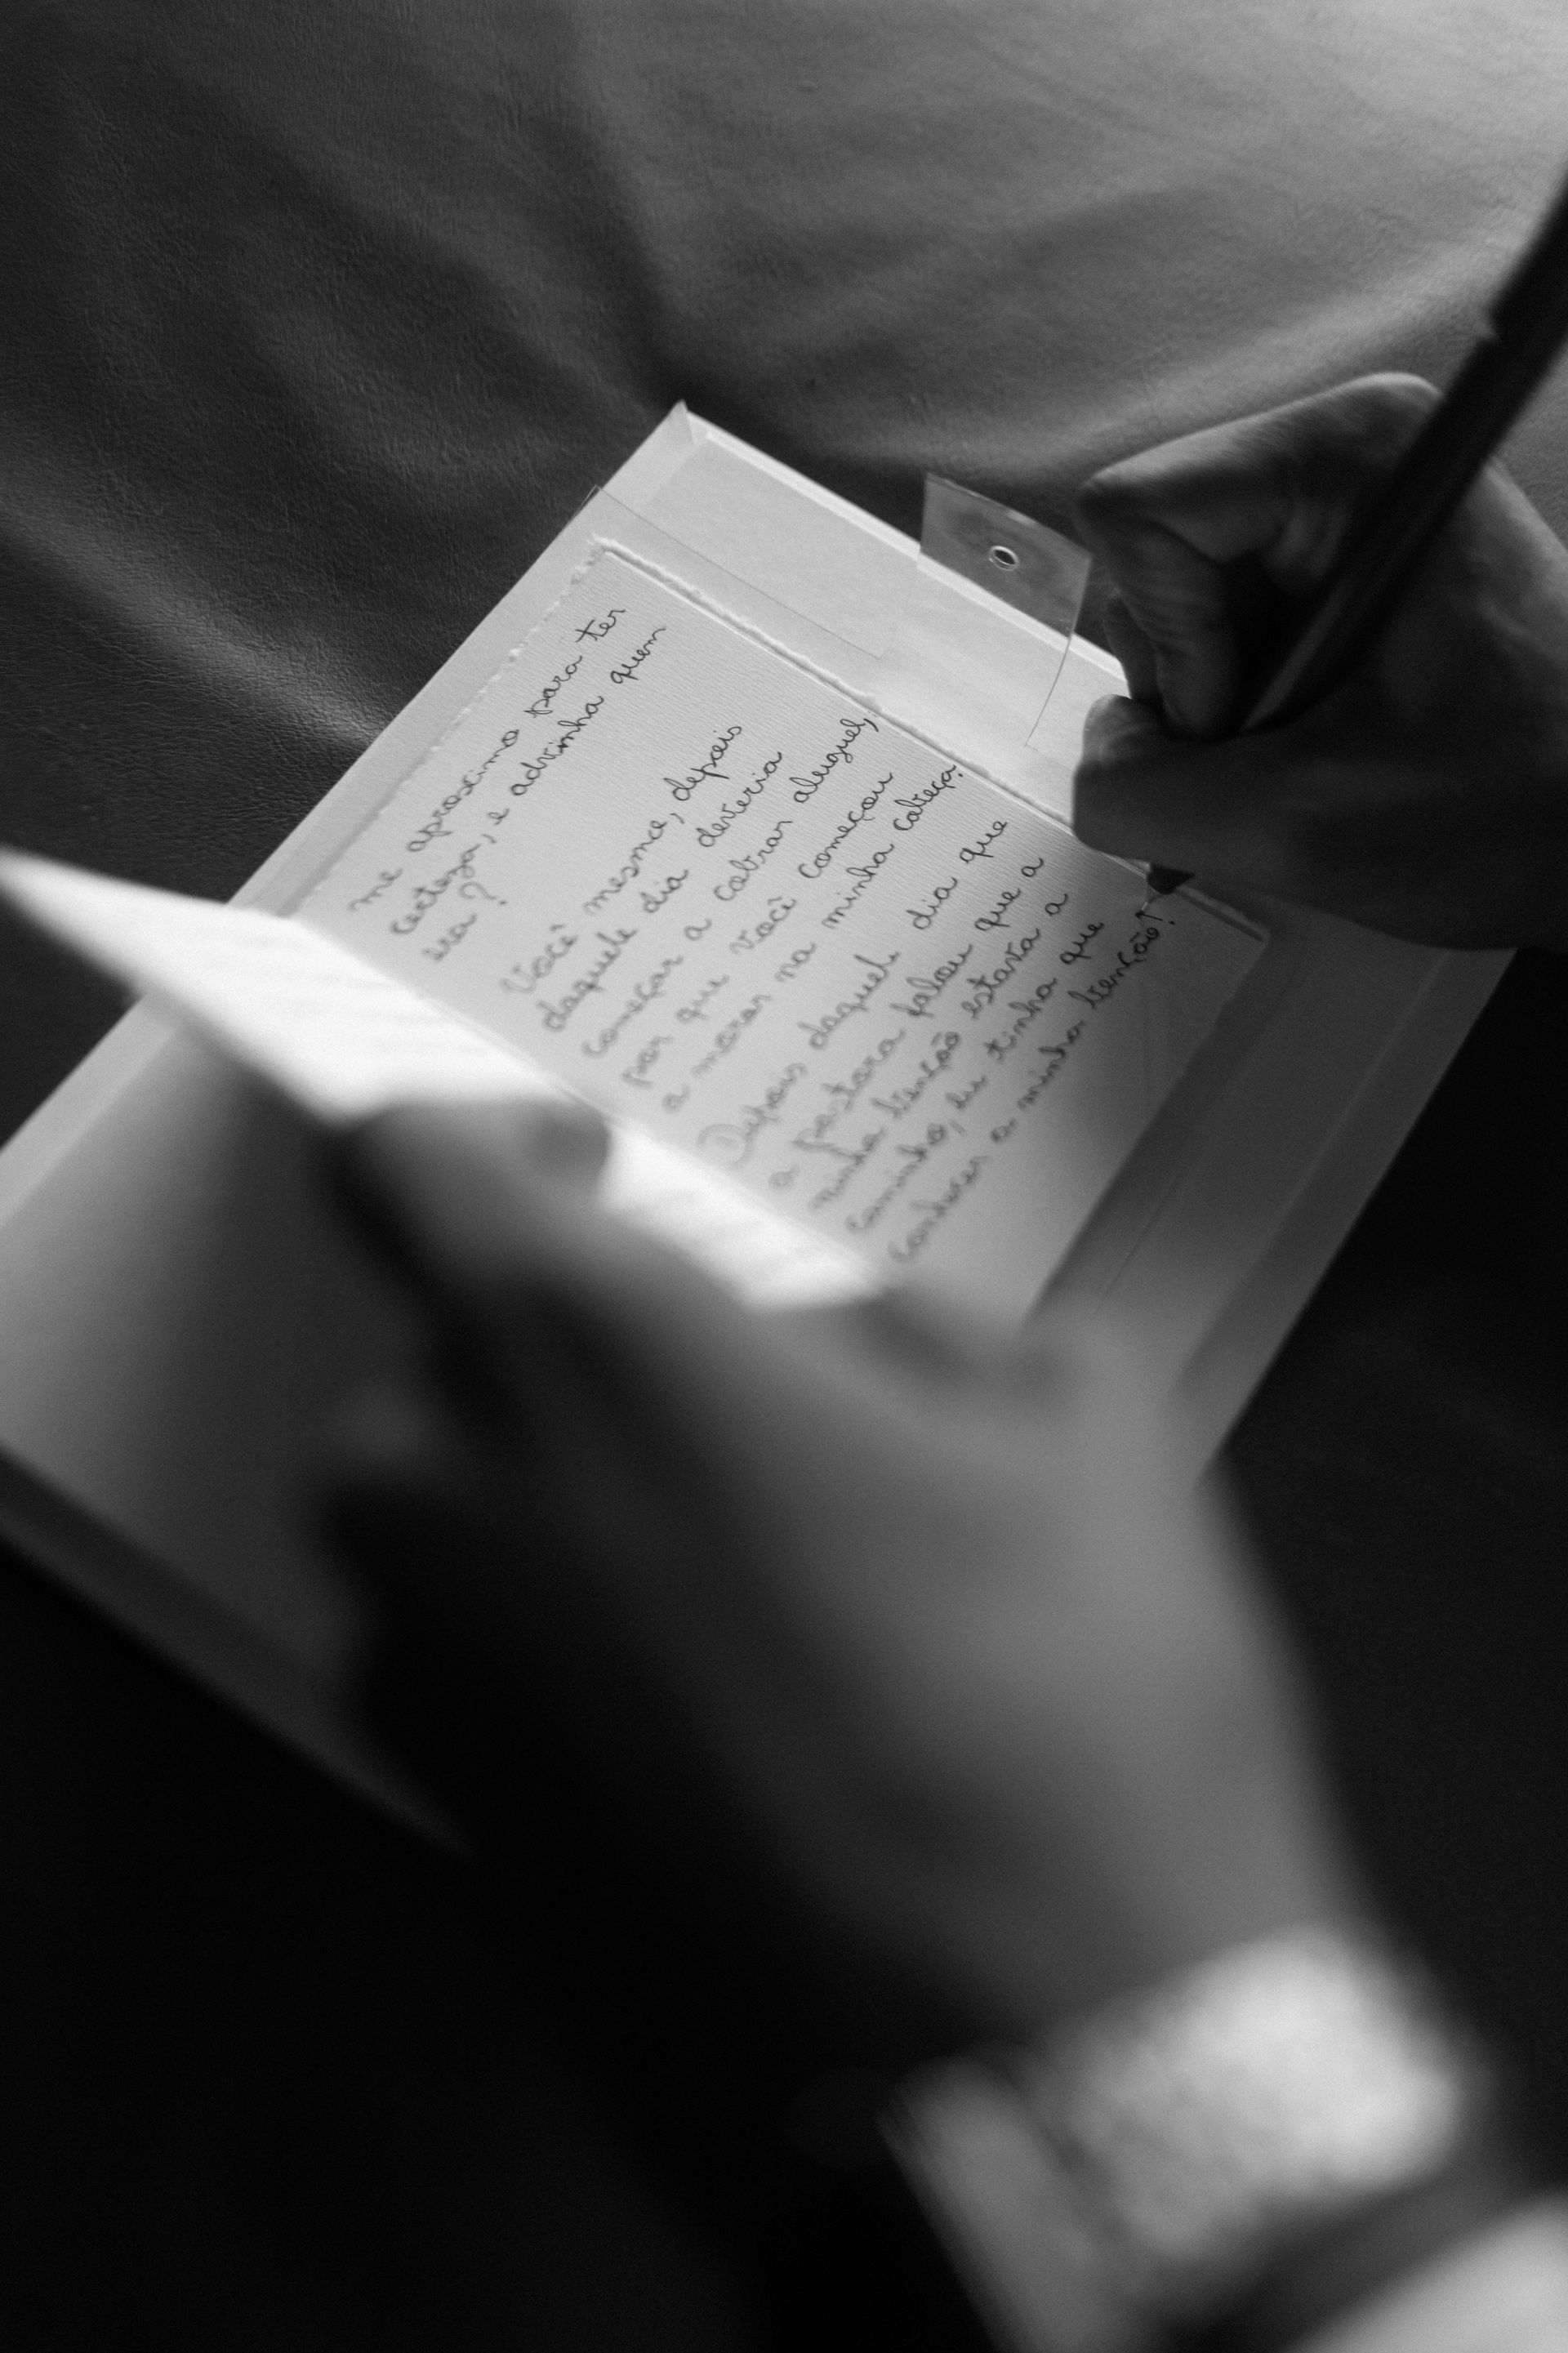 me aproximo para ter
certeza, e advinha quem
era?
Você mesma, depois
daquele dia deveria
começar a cobrar aluguel,
por que você começou
a morar na minha cabeça.
Depois daquele dia que
a pastora falou que a
minha benção estava a
caminho, eu tinha que
conhecer a minha benção!